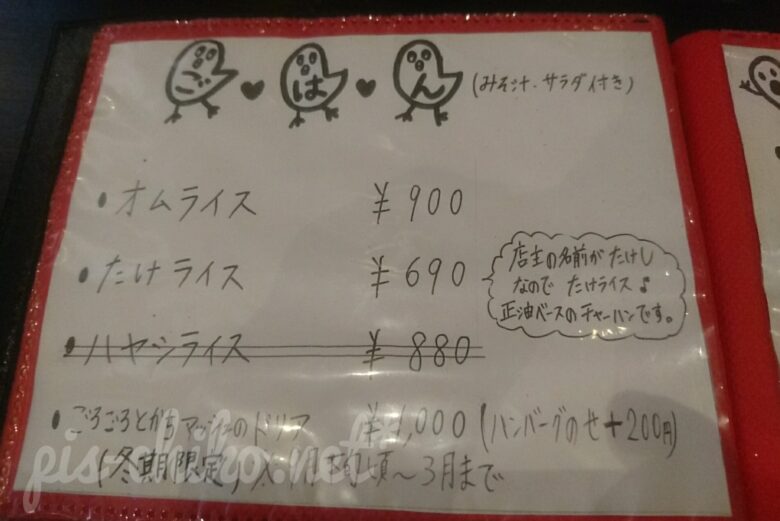 ごはん (みそ汁・サラダ付き)
・オムライス ¥900
・たけライス ¥690
店主の名前が たけし
なので たけライス♪
正油ベースのチャーハンです。
・ハヤシライス ¥880
・ごろごろとかちマッシュのドリア ¥1,000 (ハンバーグのせ+200円)
(冬期限定) 月下旬頃～3月まで
pis-chiko.net